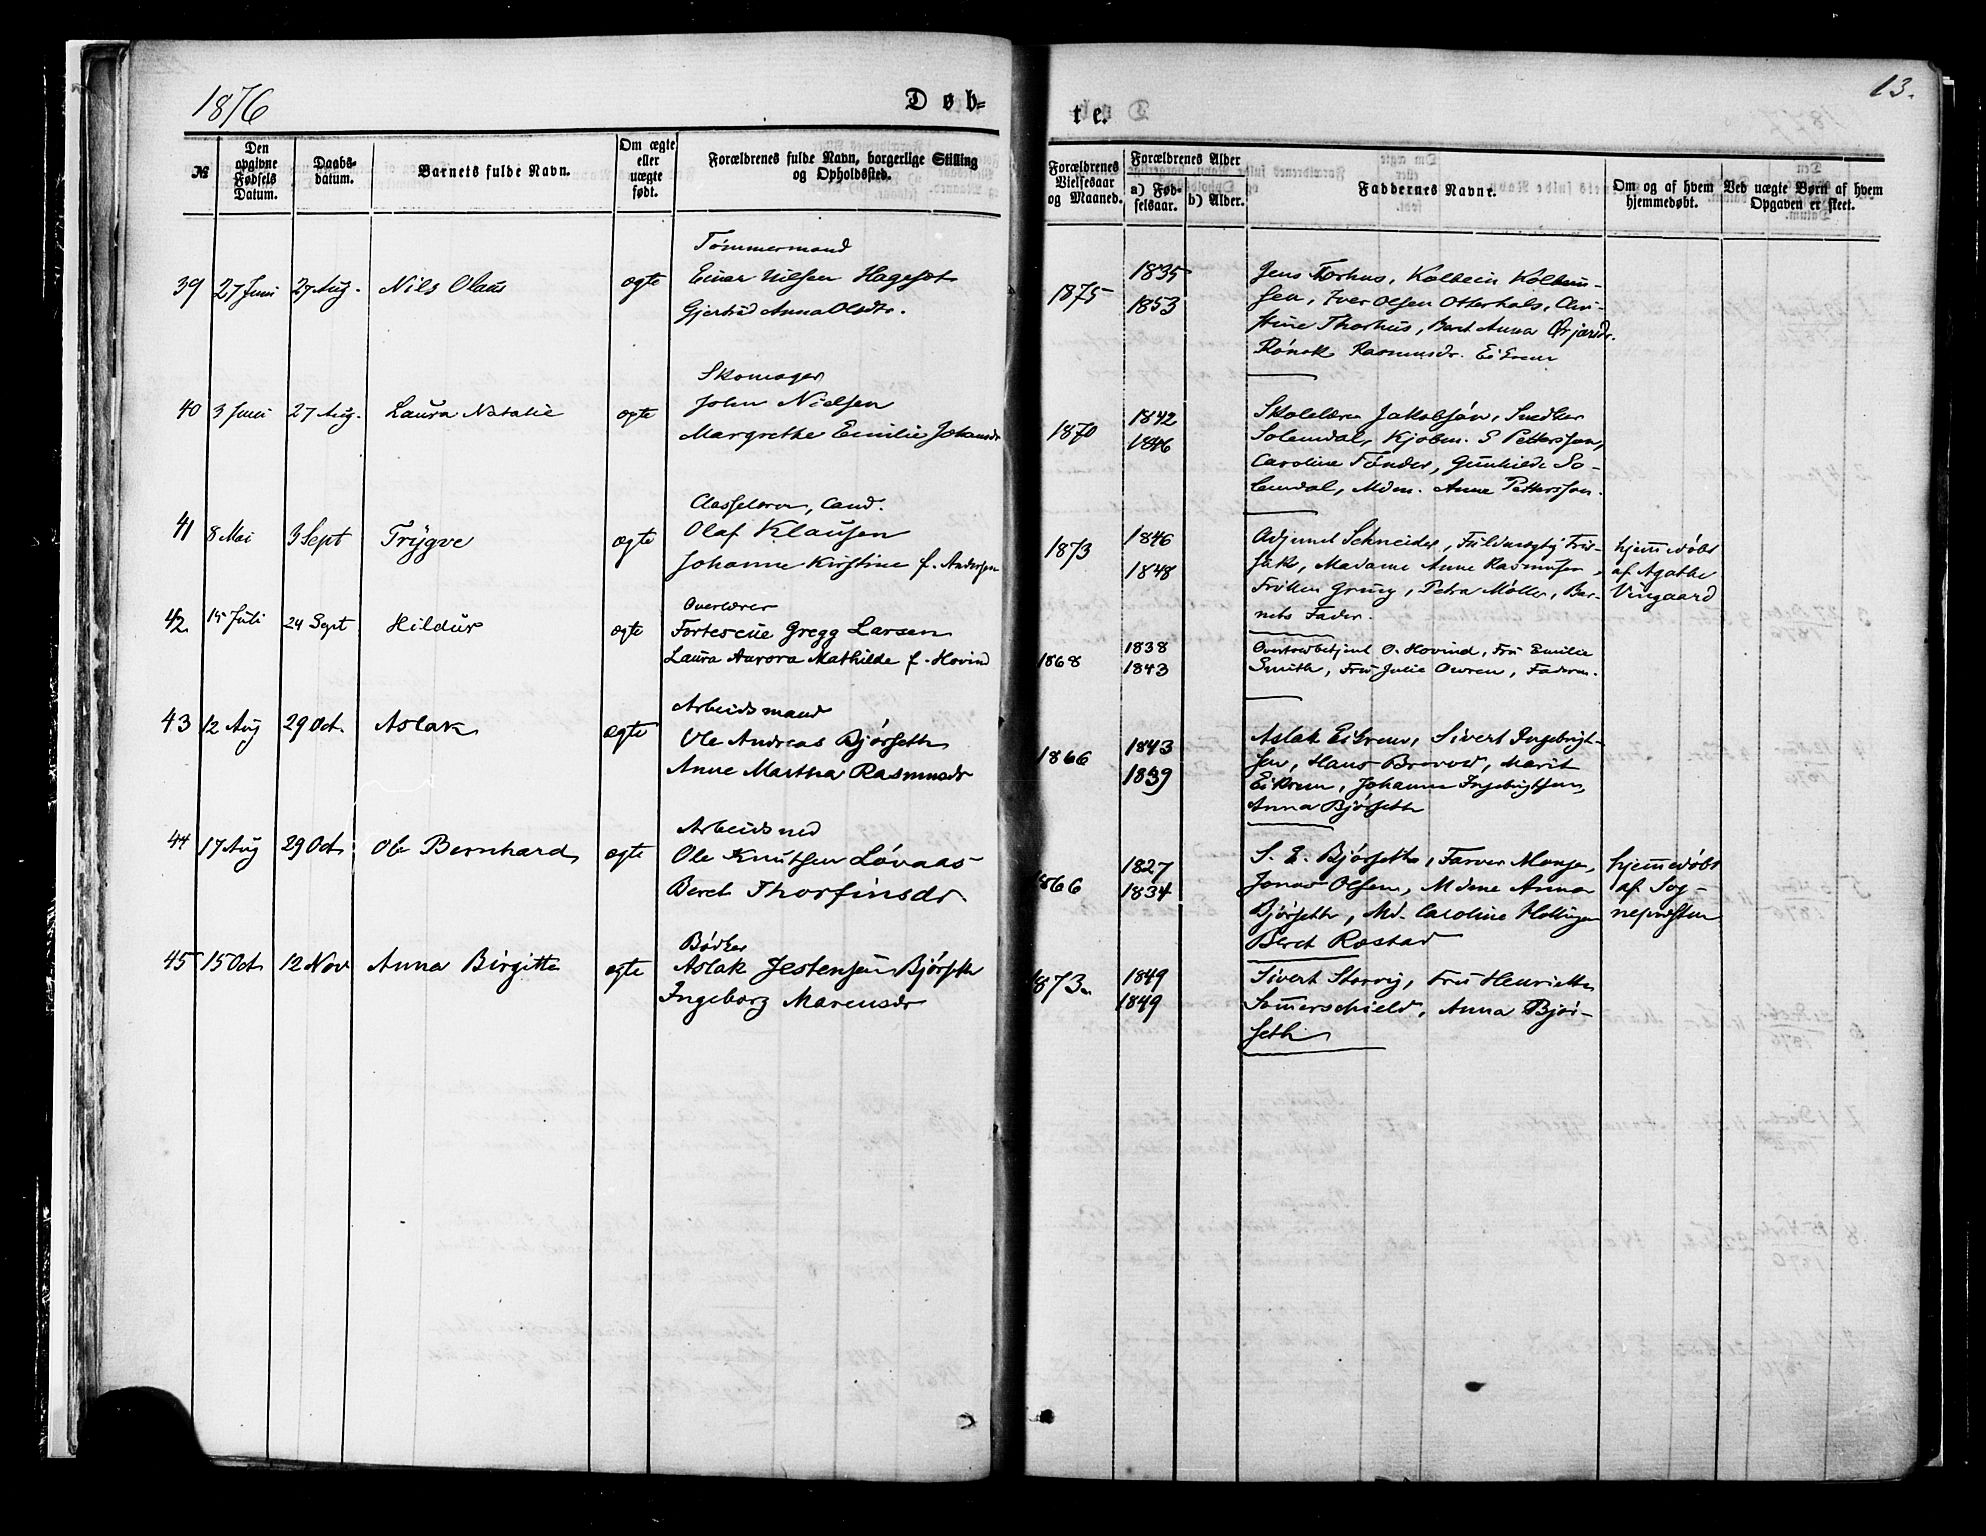 1876
Døb=
te.
13.
№
Den opgivne Fødsels Datum.
Daabs-datum.
Barnets fulde Navn.
Om ægte eller uægte født.
Forældrenes fulde Navn, borgerlige Stilling og Opholdssted.
Forældrenes Vielsesaar og Maaned.
Forældrenes Alder
a) Fødselsaar.
b) Alder.
Faddernes Navne.
Om og af hvem hjemmedøbt.
Ved uægte Børn af hvem Opgaven er skeet.
Tømmermand
39 27 Juni 27 Aug. Nils Olaus ægte Einar Nilsen Hagesæt
Gjertrud Anna Olsdtr.
1875 1835 1853
Jens Torhus, Kolbein Kolbein-
sen, Iver Olsen Otterhals, Chri-
stine Thorhus, Berit Anna
Rasmusdr. Eikrem
Skomager
40 3 Juni 27 Aug. Laura Natalie ægte John Nielsen
Margrethe Emilie Johansdr
1870 1842 1846
Skolelærer Jakobsøn, Snedker
Solemdal, Kjøbm. S Pettersson,
Caroline Tønder, Gunhilde So-
lemdal, Mdm. Anne Pettersson.
Classelærer, Cand.
41 8 Mai 3 Sept Trygve ægte Olaf Klausen
Johanne Kirstine f. Andersen
1873 1846 1848
Adjunct Schneider, Fuldmægtig
Madame Anne Rasmusen,
Frøken Grung, Petra Møller, Bar-
nets Fader.
hjemmedøbt
af Agathe
Viingaard
Overlærer
42 15 Juli 24 Sept Hildur ægte Fortescue Gregg Larsen
Laura Aurora Mathilde f. Hovind
1868 1838 1843
O. Hovind, Fru Emilie
Smith, Fru Julie Owren, Faderen.
Arbeidsmand
43 12 Aug 29 Oct. Aslak ægte Ole Andreas Bjørseth
Anne Martha Rasmusdr
1866 1843 1839
Aslak Eikrem, Sivert Ingebrigt-
sen, Hans Marit
Eikrem, Johanne Ingebrigtsen,
Anna Bjørseth
Arbeidsmd
44 17 Aug 29 Oct. Ole Bernhard ægte Ole Knutsen Løvaas
Beret Thorfinsdr
1866 1827 1834
S. E. Bjørseth, Farver Monge,
Jonas Olsen, Mdme Anna
Bjørseth, Md. Caroline
Beret Røstad
hjemmedøbt
af Sog-
nepresten
Bødker
45 15 Oct 12 Nov Anna Birgitte ægte Aslak Jestensen Bjørseth
Ingeborg Marensdr
1873 1849 1849
Sivert Storvig, Fru Henriette
Sommerschield, Anna Bjør-
seth